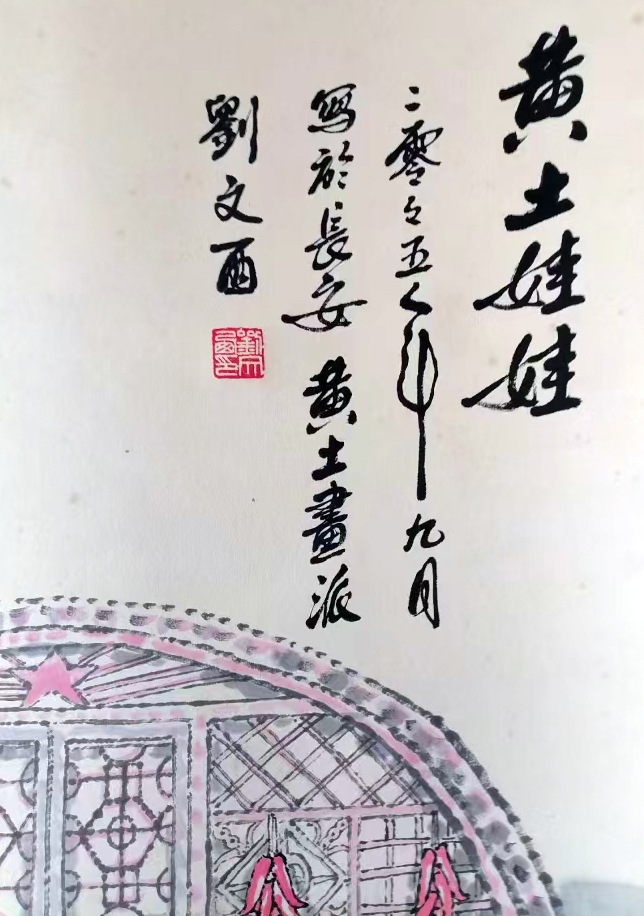 黄土娃娃
二零々五年九月
寫於長安 黄土畫派
劉文西
劉文西印